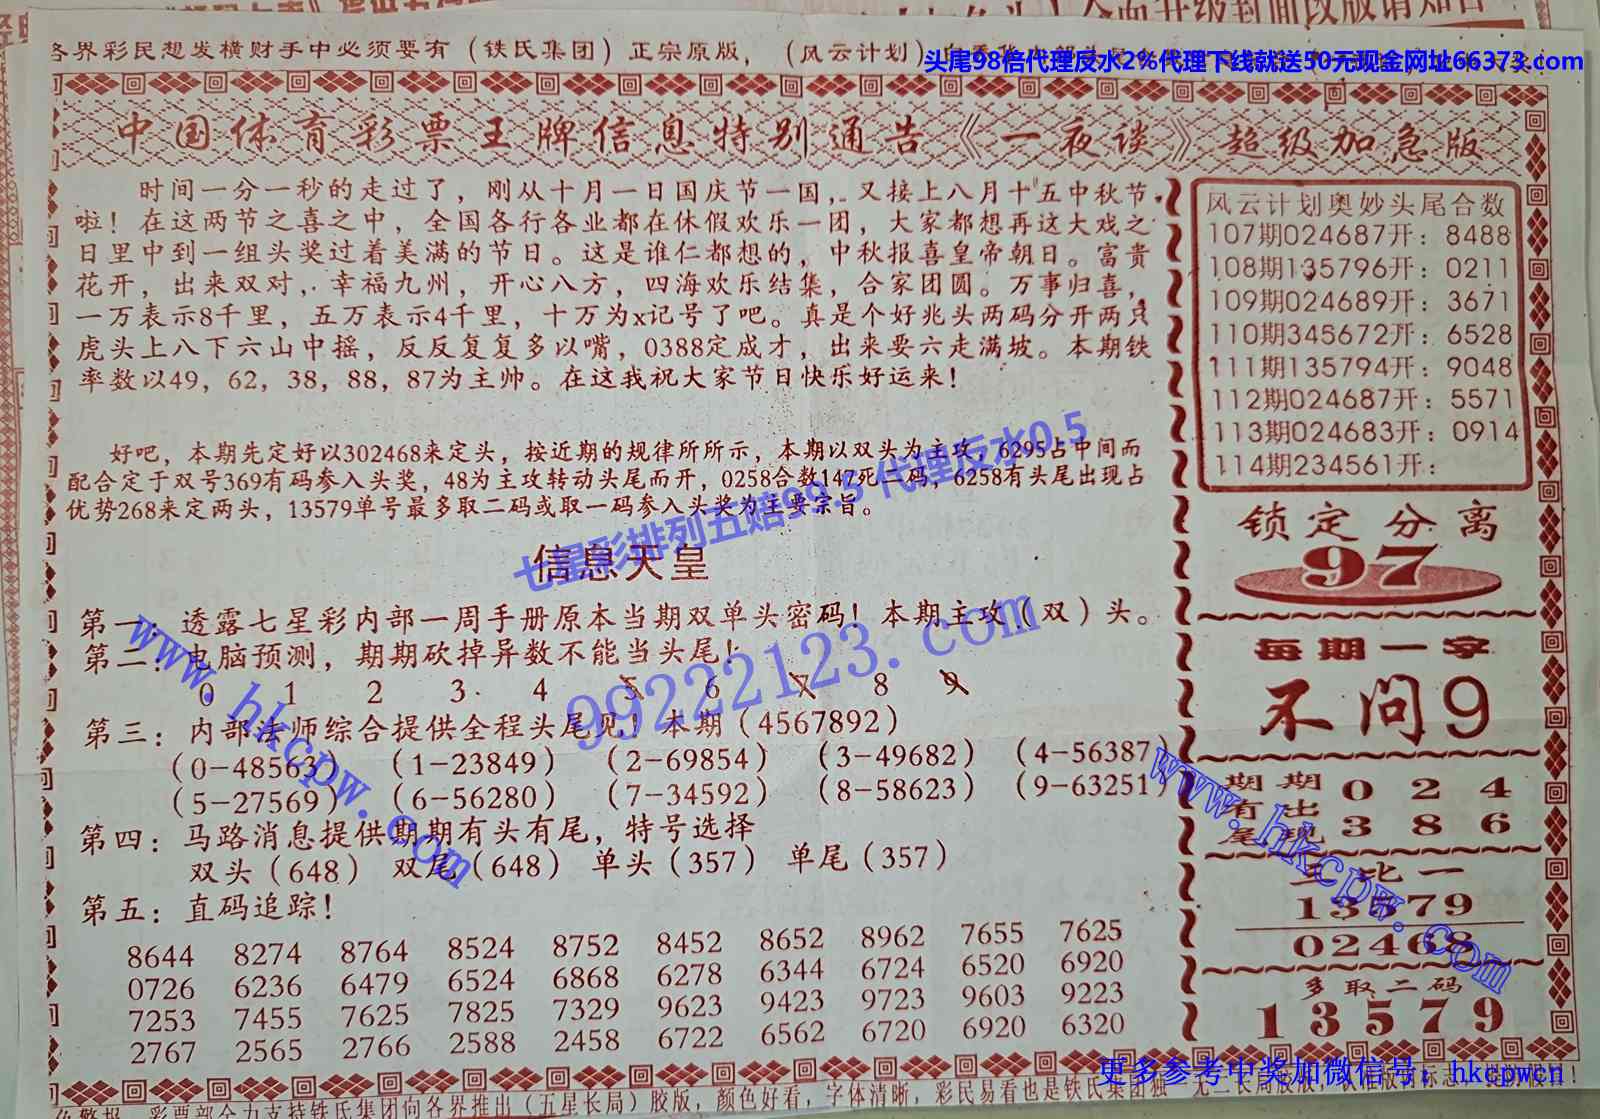 各界彩民想发横财手中必须要有（铁氏集团）正宗原版，（风云计划）
头尾98倍代理反水2%代理下线就送50元现金网址66373.com
中国体育彩票王牌信息特别通告《一夜谈》超级加急版
时间一分一秒的走过了，刚从十月一日国庆节一国，又接上八月十五中秋节，
啦！在这两节之喜之中，全国各行各业都在休假欢乐一团，大家都想再这大戏之
日里中到一组头奖过着美满的节日。这是谁仁都想的，中秋报喜皇帝朝日。富贵
花开，出来双对，幸福九州，开心八方，四海欢乐结集，合家团圆。万事归喜，
一万表示8千里，五万表示4千里，十万为x记号了吧。真是个好兆头两码分开两只
虎头上八下六山中摇，反反复复多以嘴，0388定成才，出来要六走满坡。本期铁
率数以49，62，38，88，87为主帅。在这我祝大家节日快乐好运来！
好吧，本期先定好以302468来定头，按近期的规律所所示，本期以双头为主攻，6295占中间而
配合定于双号369有码参入头奖，48为主攻转动头尾而开，0258合数147死二码，6258有头尾出现占
优势268来定两头，13579单号最多取二码或取一码参入头奖为主要宗旨。
七星彩排列五赔99.5 代理反水0.5
信息天皇
第一：透露七星彩内部一周手册原本当期双单头密码！本期主攻（双）头。
第二：电脑预测，期期砍掉异数不能当头尾！
0 1 2 3 4 5 6 7 8 9
第三：内部法师综合提供全程头尾见！本期（4567892）
（0-48563）（1-23849）（2-69854）（3-49682）（4-56387）
（5-27569）（6-56280）（7-34592）（8-58623）（9-63251）
第四：马路消息提供期期有头有尾，特号选择
双头（648） 双尾（648） 单头（357） 单尾（357）
第五：直码追踪！
8644 8274 8764 8524 8752 8452 8652 8962 7655 7625
0726 6236 6479 6524 6868 6278 6344 6724 6520 6920
7253 7455 7625 7825 7329 9623 9423 9723 9603 9223
2767 2565 2766 2588 2458 6722 6562 6720 6920 6320
www.hkcpw.com
99222123.com
风云计划奥妙头尾合数
107期024687开：8488
108期135796开：0211
109期024689开：3671
110期345672开：6528
111期135794开：9048
112期024687开：5571
113期024683开：0914
114期234561开：
锁定分离
97
每期一字
不问9
期期 0 2 4
有出
尾现 3 8 6
三比一
13579
02468
多取二码
13579
www.hkcpw.com
更多参考中奖加微信号：hkcpwcn
彩票部全力支持铁氏集团向各界推出（五星长局）胶版，颜色好看，字体清晰，彩民易看也是铁氏集团独